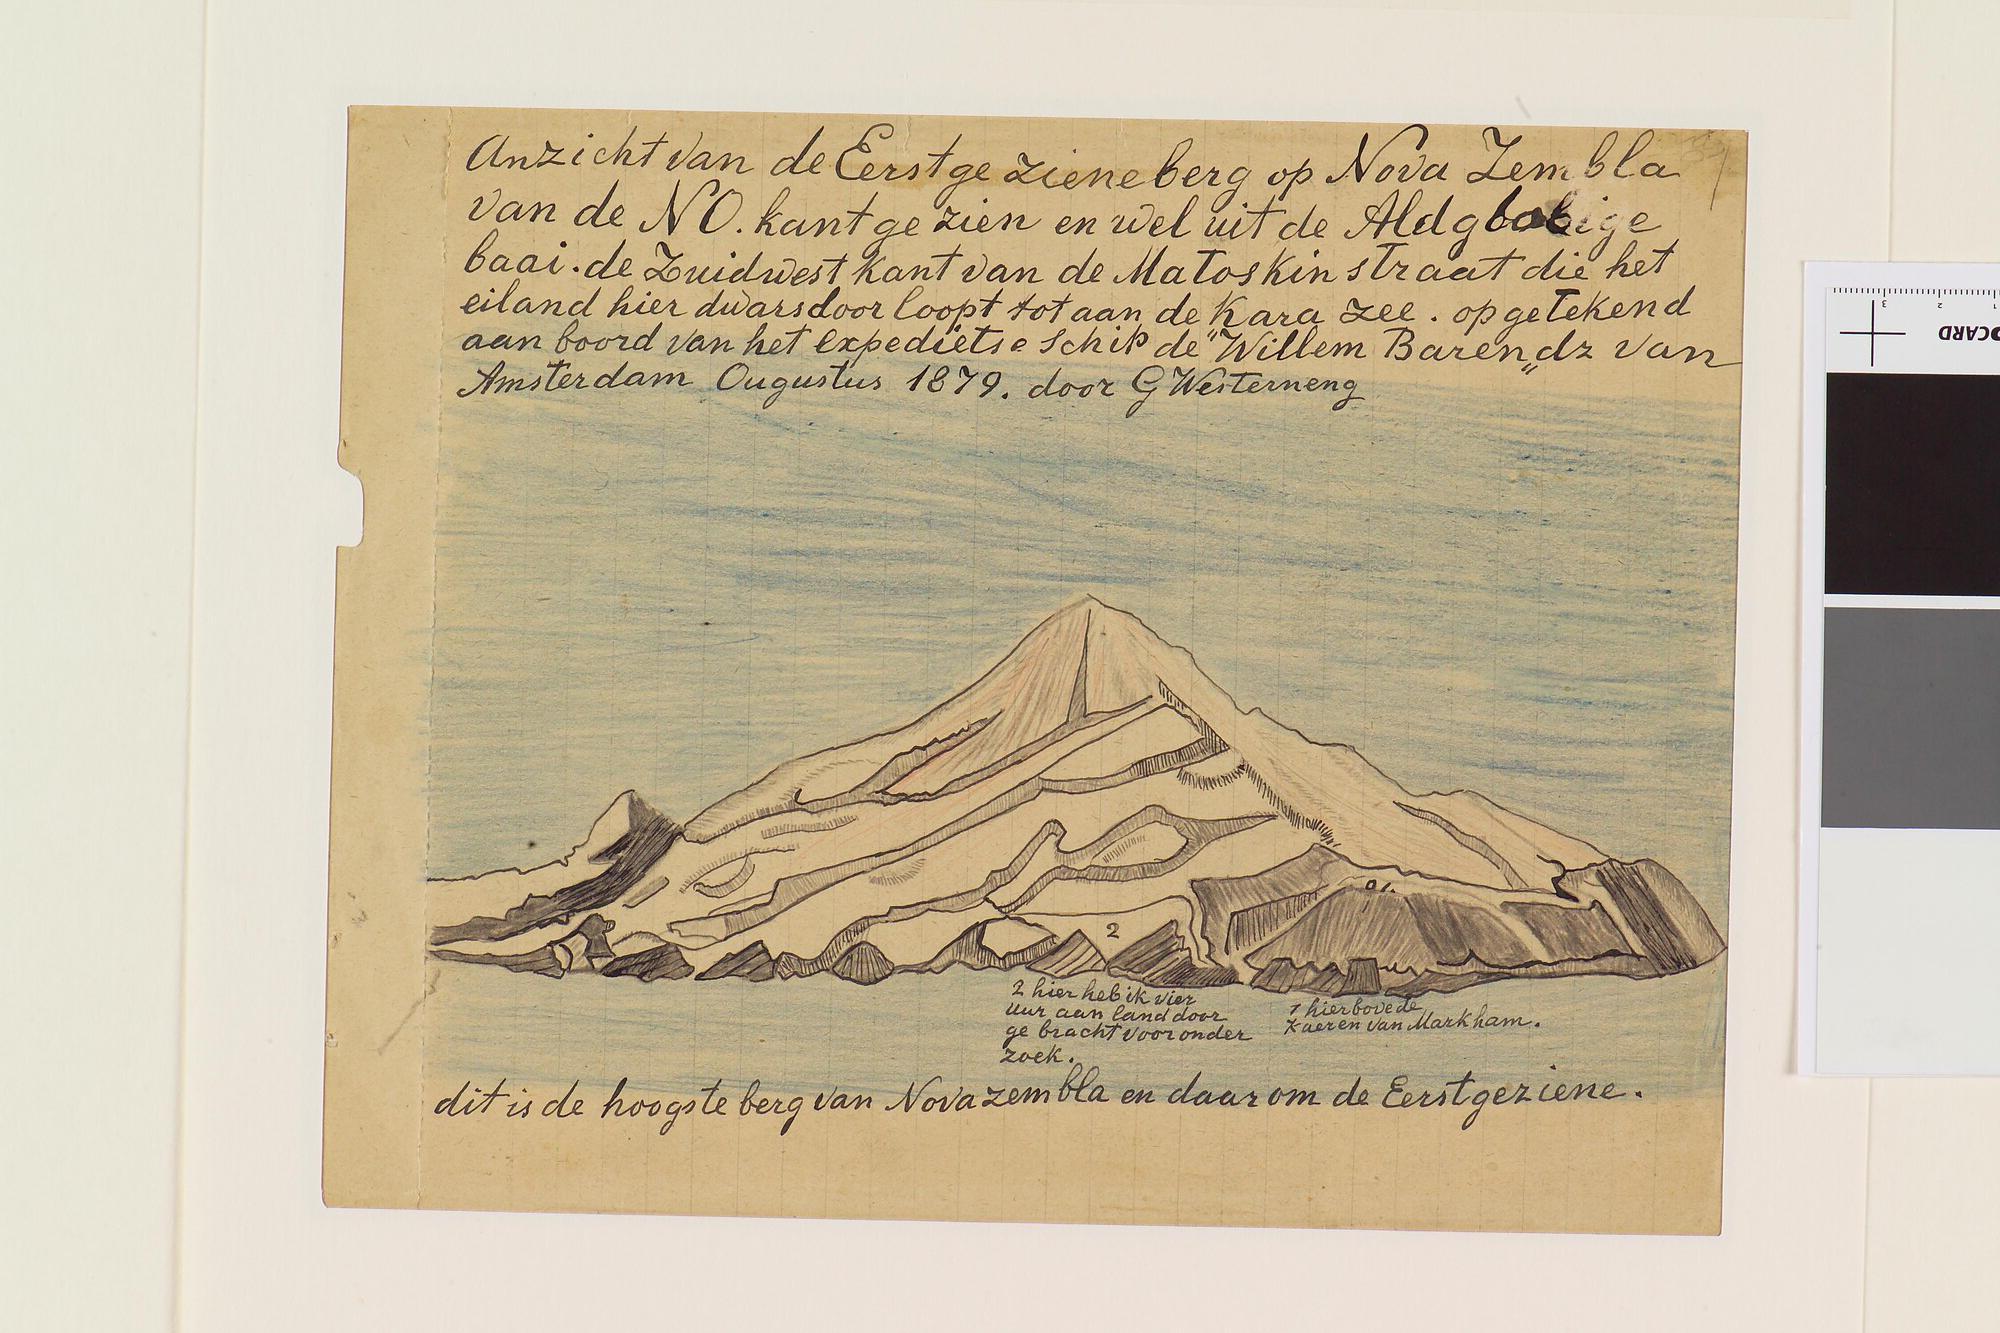 Anzicht van de Eerstgezieneberg op Nova Zembla
van de NO. kant gezien en wel uit de
baai. de Zuidwest kant van de Matoskin straat die het
eiland hier dwarsdoor loopt tot aan de Kara zee. opgetekend
aan boord van het expedietse Schip de "Willem Barendz„ van
Amsterdam Ougustus 1879. door G Westerneng
2
2 hier heb ik vier
uur aan land door
ge bracht voor onder
zoek.
1 hier bovede
Kaeren van Markham.
dit is de hoogste berg van Nova zembla en daarom de Eerstgeziene.
3 2 1